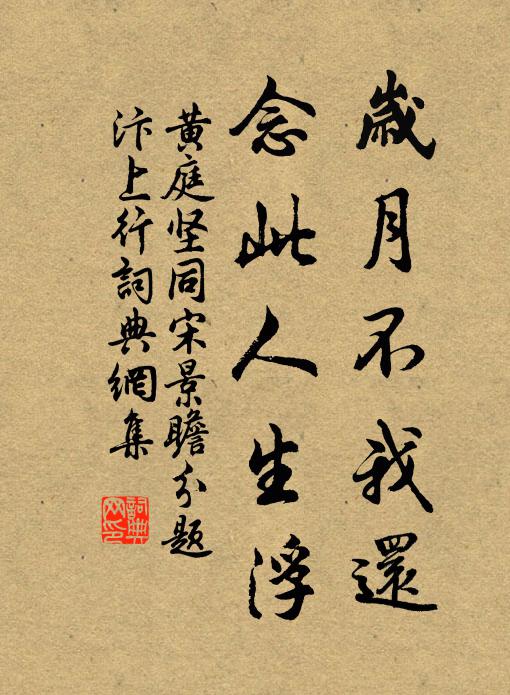 歲月不我還
念此人生浮
黄庭坚同宋景瞻分题
汴上行詞典網集
詞典
网印